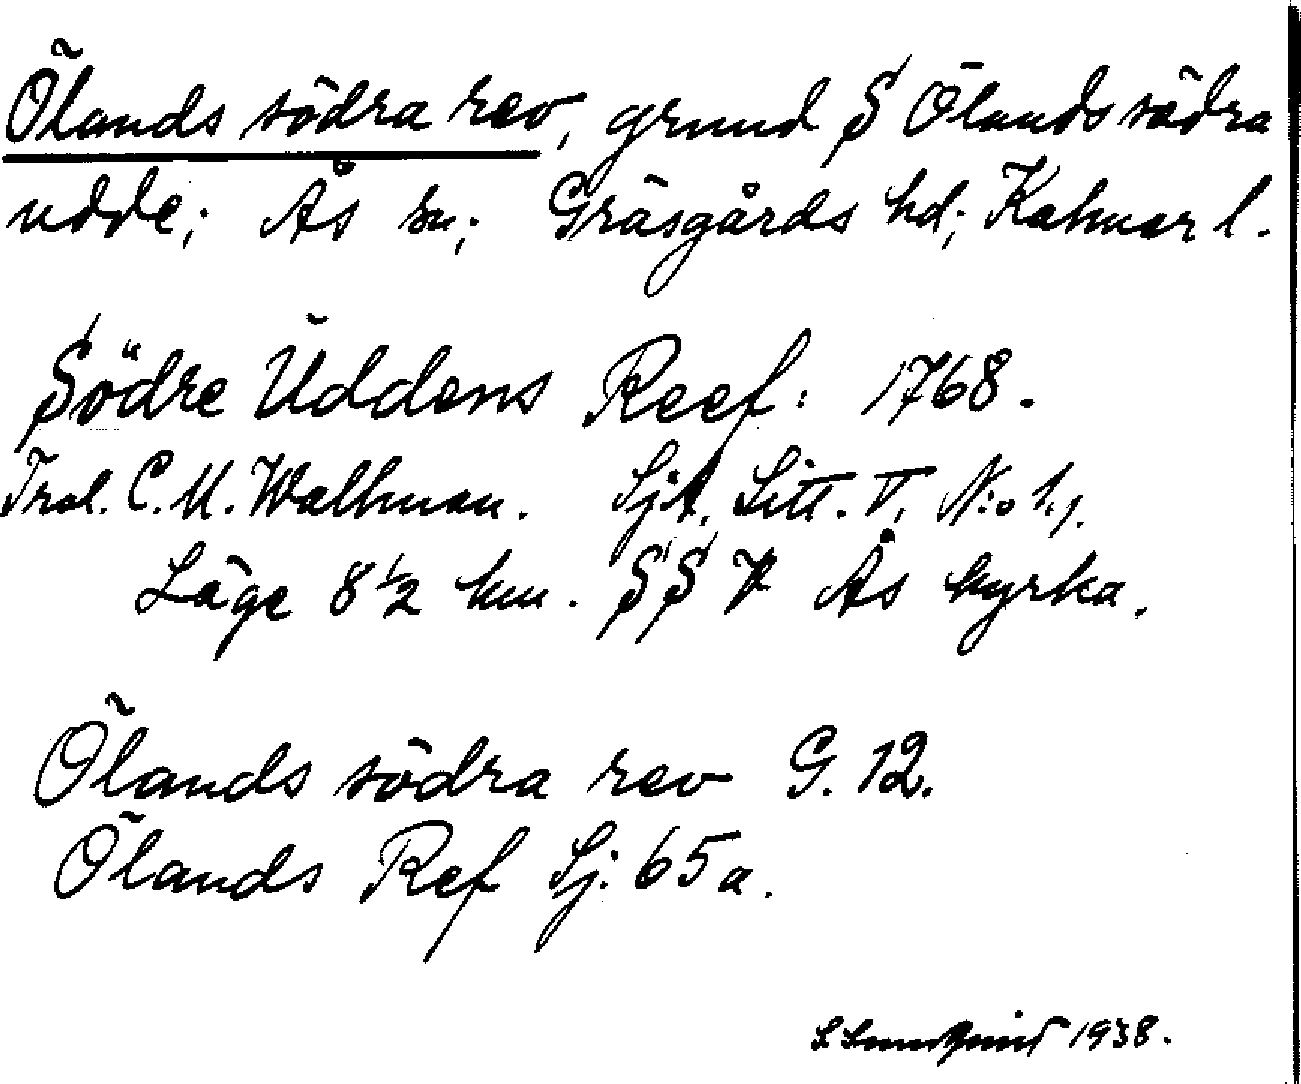 Ölands södra rev, grund S Ölands södra
udde; Ås sn; Gräsgårds hd; Kalmar l.
Södre Uddens Reef: 1768.
Trol. C. U. Wallman. SjA. Litt. V, N:o 1.
Läge 8 1/2 km. SSV Ås kyrka.
Ölands södra rev G. 12.
Ölands Ref Sj: 65a.
S. Lundquist 1938.